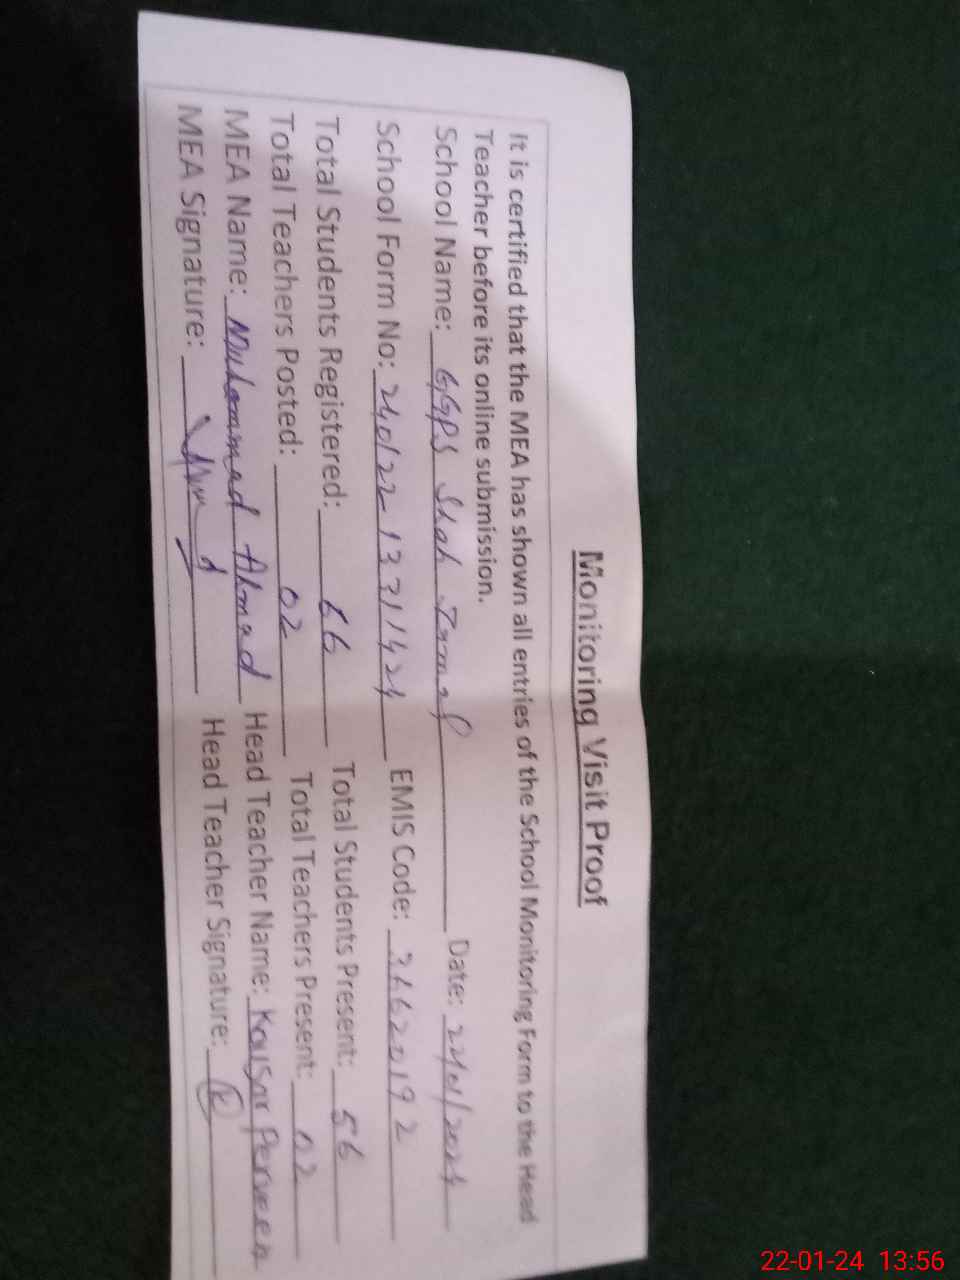 Monitoring Visit Proof
It is certified that the MEA has shown all entries of the School Monitoring Form to the Head
Teacher before its online submission.
School Name: GGPS Shah Jamal Date: 22/01/2024
School Form No: 240122-1331424 EMIS Code: 36620192
Total Students Registered: 66 Total Students Present: 56
Total Teachers Posted: 02 Total Teachers Present: 02
MEA Name: Muhammad Ahmad Head Teacher Name: Kausar Perveen
MEA Signature: Head Teacher Signature: K
22-01-24 13:56